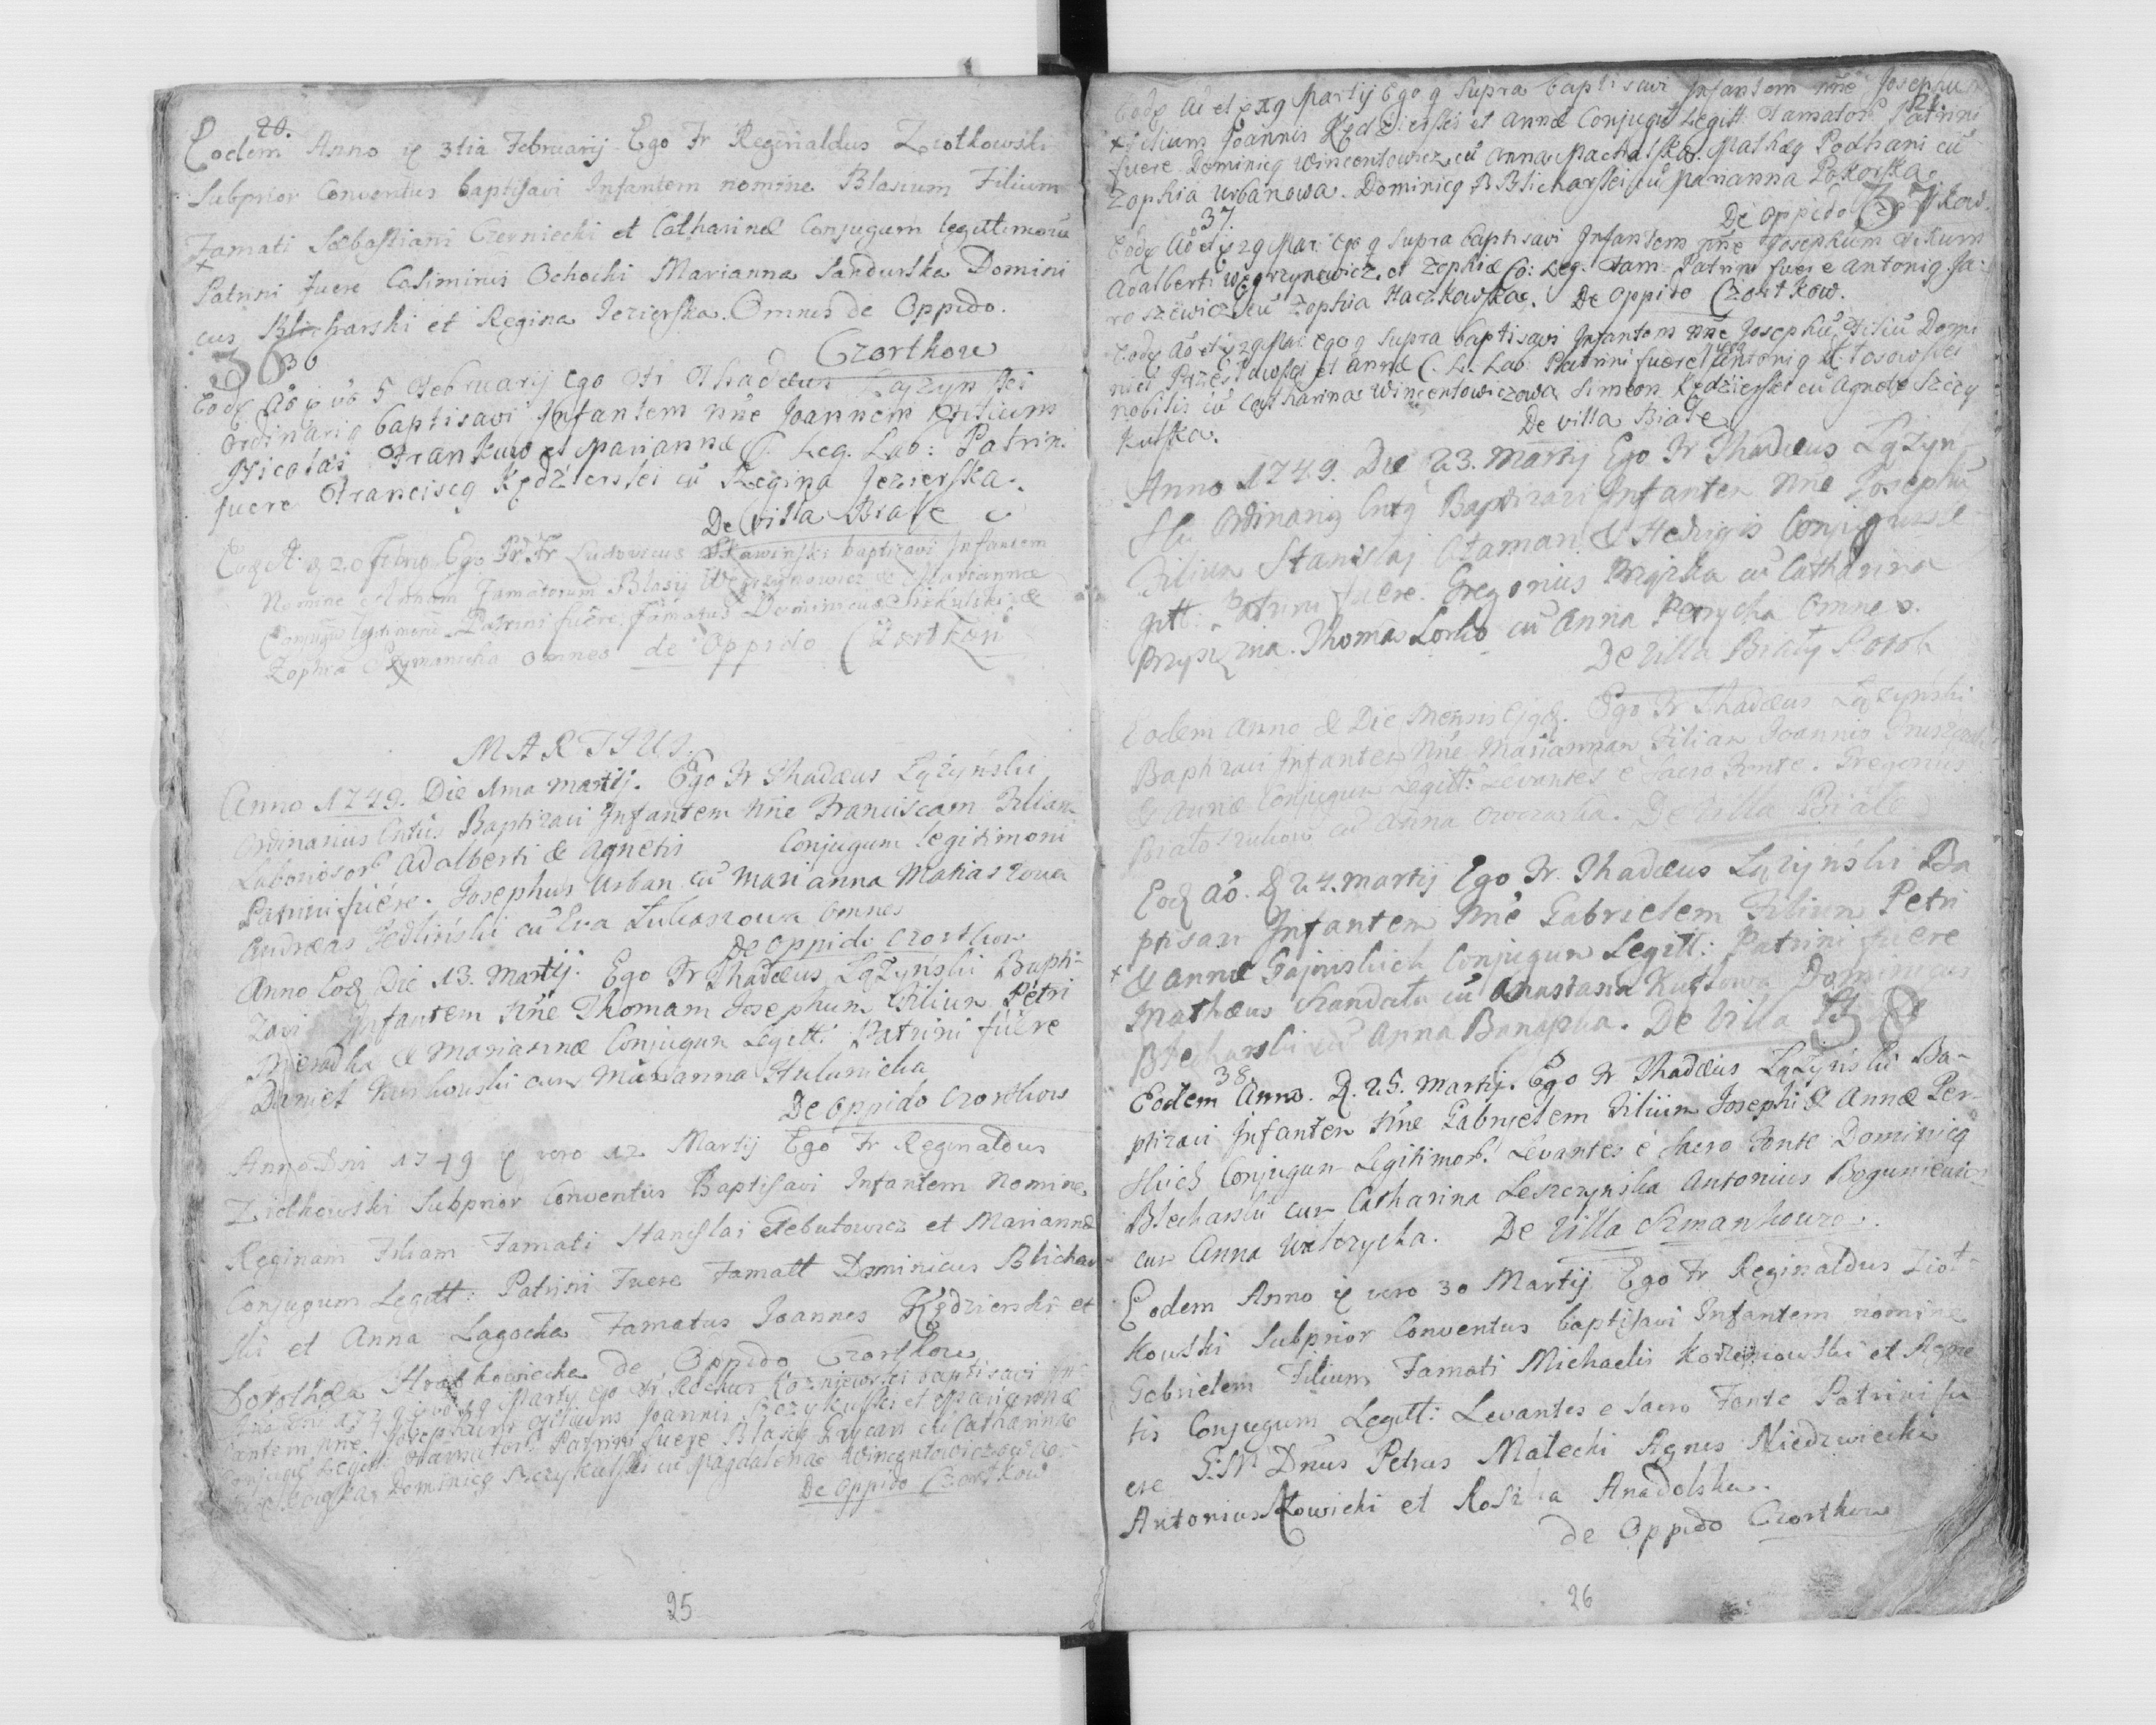 20.
Eodem Anno ę 3tia Februarij Ego Fr Reginaldus Ziołkowski
Subprior Conventus baptisavi Infantem nomine Blasium Filium
Famati Sebastiani Czerniecki et Catharinæ Conjugum legittimorũ
Patrini fuere Casimirus Ochocki Marianna Sandurska Domini
cus Blicharski et Regina Jezierska. Omnes de Oppido.
Czortkow
36 36
Eodę Aõ ę võ 5 Februarij Ego Fr Thadæus Łązynski
Ordinariq baptisavi Infantem nñe Joannem Filium
Nicolai Frankow et Mariannæ C. Leg. Lab: Patrini
fuere Franciscq Kędzierski cũ Regina Jezierska.
De villa Białe
Eodę A: ę 20 Febru: Ego Fr Ludovicus Skawinski baptizavi Infantem
Nomine Annam Famatorum Blasij Węgrzynowicz & Mariannæ
Conjugũ legitimorũ Patrini fuere famatus Dominicus &
Zophia Szymanicka omnes de Oppido Czortkow
MARTIUS.
Anno 1749. Die 1ma Martij. Ego Fr Thadæus Łązyński
Ordinarius Cntus Baptizavi Infantem Nñe Franciscam Filiam
Laboriosor Adalberti & Agnetis Conjugum legitimorũ
Patrini fuere. Josephus Urban cũ Marianna Matiaszowa
Andræas Jedlinski cũ Eva Łukaszowa omnes
De Oppido Czortkow
Anno Eodę Die 13. Martij. Ego Fr Thadæus Łązyński Bapti-
zavi Infantem Nñe Thomam Josephum Filium Petri
& Mariannæ Conjugum Legitt: Patrini fuere
Daniel Kurkowski cum Marianna Hulunicka
De Oppido Czortkow
Anno Dni 1749 ę vero 12 Martij Ego Fr Reginaldus
Ziołkowski Subprior Conventus Baptisavi Infantem Nomine
Reginam Filiam Famati Stanislai Debutowicz et Mariannæ
Conjugum Legitt: Patrini fuere Famatt Dominicus Blichar
ski et Anna Lagocka Famatus Joannes Kędzierski et
Dorothea de Oppido Czortkow
Anno Dni 1749 ę vo 19 Martij Ego Fr Rochus Kozniewski baptisavi In
fantem nñe Josephum Filium Joannis Szczykulski et Mariannæ
Conjugũ Legitt: Famator: Patrini fuere Blasiq Hrycan cũ Catharina
Dominicq Szczykulski cũ Magdalena Wincentowiczowna
De Oppido Czortkow
25
Eodę Aõ et ę 19 Martij Ego q supra baptisavi Infantem nñe Josephum
21
Filium Joannis Kędzierski et Annæ Conjugũ Legitt: Famator: Patrini
fuere Dominicq Wincentowicz cũ Anna Machalska. Mathæq Podhani cũ
Zophia Urbanowa. Dominicq Blicharski cũ Marianna Pokorska.
De Oppido Czortkow.
37 37
Eodę Aõ et ę 29 Mar: Ego q supra baptisavi Infantem nñe Josephum Filium
Adalberti Węgrzynowicz et Zophiæ Co: Leg. Fam: Patrini fuere Antoniq Ja:
roszewicz cũ Zophia Haczkowska. De Oppido Czortkow.
Eodę Aõ et ę 29 Mar: ego q supra baptisavi Infantem nñe Josephũ Filiũ Domi
nici et Annæ C. L. Lab: Patrini fuere Antoniq
nobilis cũ Catharina Wincentowiczowa Simeon Kędzierski cũ Agnete Szczy
kulska.
De villa Białe
Anno 1749. Die 23. Martij Ego Fr Thadæus Łązyn
ski Ordinariq Cntq Baptizavi Infantem Nñe Josephũ
Filium Stanislaj Ataman & Hedvigis Conjugum Le
gitt: Patrini fuere. Gregorius cũ Catharina
Thomas cũ Anna omnes.
De Villa Biały Potok
Eodem Anno & Die Mensis Ejqdę. Ego Fr Thadæus Łązyński
Baptizavi Infantem Nñe Mariannam Filiam Joannis
& Annæ Conjugum Legitt: Levantes e Sacro Fonte. Gregorius
cũ Anna Owczarka. De Villa Białe
Eodę Aõ. ę 24. Martij Ego Fr. Thadæus Łązyński Ba
ptisavi Infantem Nñe Gabrielem Filium Petri
& Annæ Gajewskich Conjugum Legitt: Patrini fuere
Mathæus cũ Anastasia Dominicus
Blecharski cũ Anna Banaska. De Villa
38 38
Eodem Anno. ę. 25. Martij. Ego Fr Thadæus Łązyński Ba-
ptizavi Infantem Nñe Gabrielem Filium Josephi & Annæ Per-
skich Conjugum Legitimor. Levantes e Sacro Fonte Dominicq
Blecharski cum Catharina Leszczynska Antonius
cum Anna De Villa Szmankowze.
Eodem Anno ę vero 30 Martij Ego Fr Reginaldus Zioł-
kowski Subprior Conventus baptisavi Infantem nomine
Gabrielem Filium Famati Michaelis Korzeniowski et Agne
tis Conjugum Legitt: Levantes e Sacro Fonte Patrini fu
ere Dñus Petrus Malecki Agnes Niedzwiecka
Antonius et Rosalia Anadolska.
de Oppido Czortkow
26